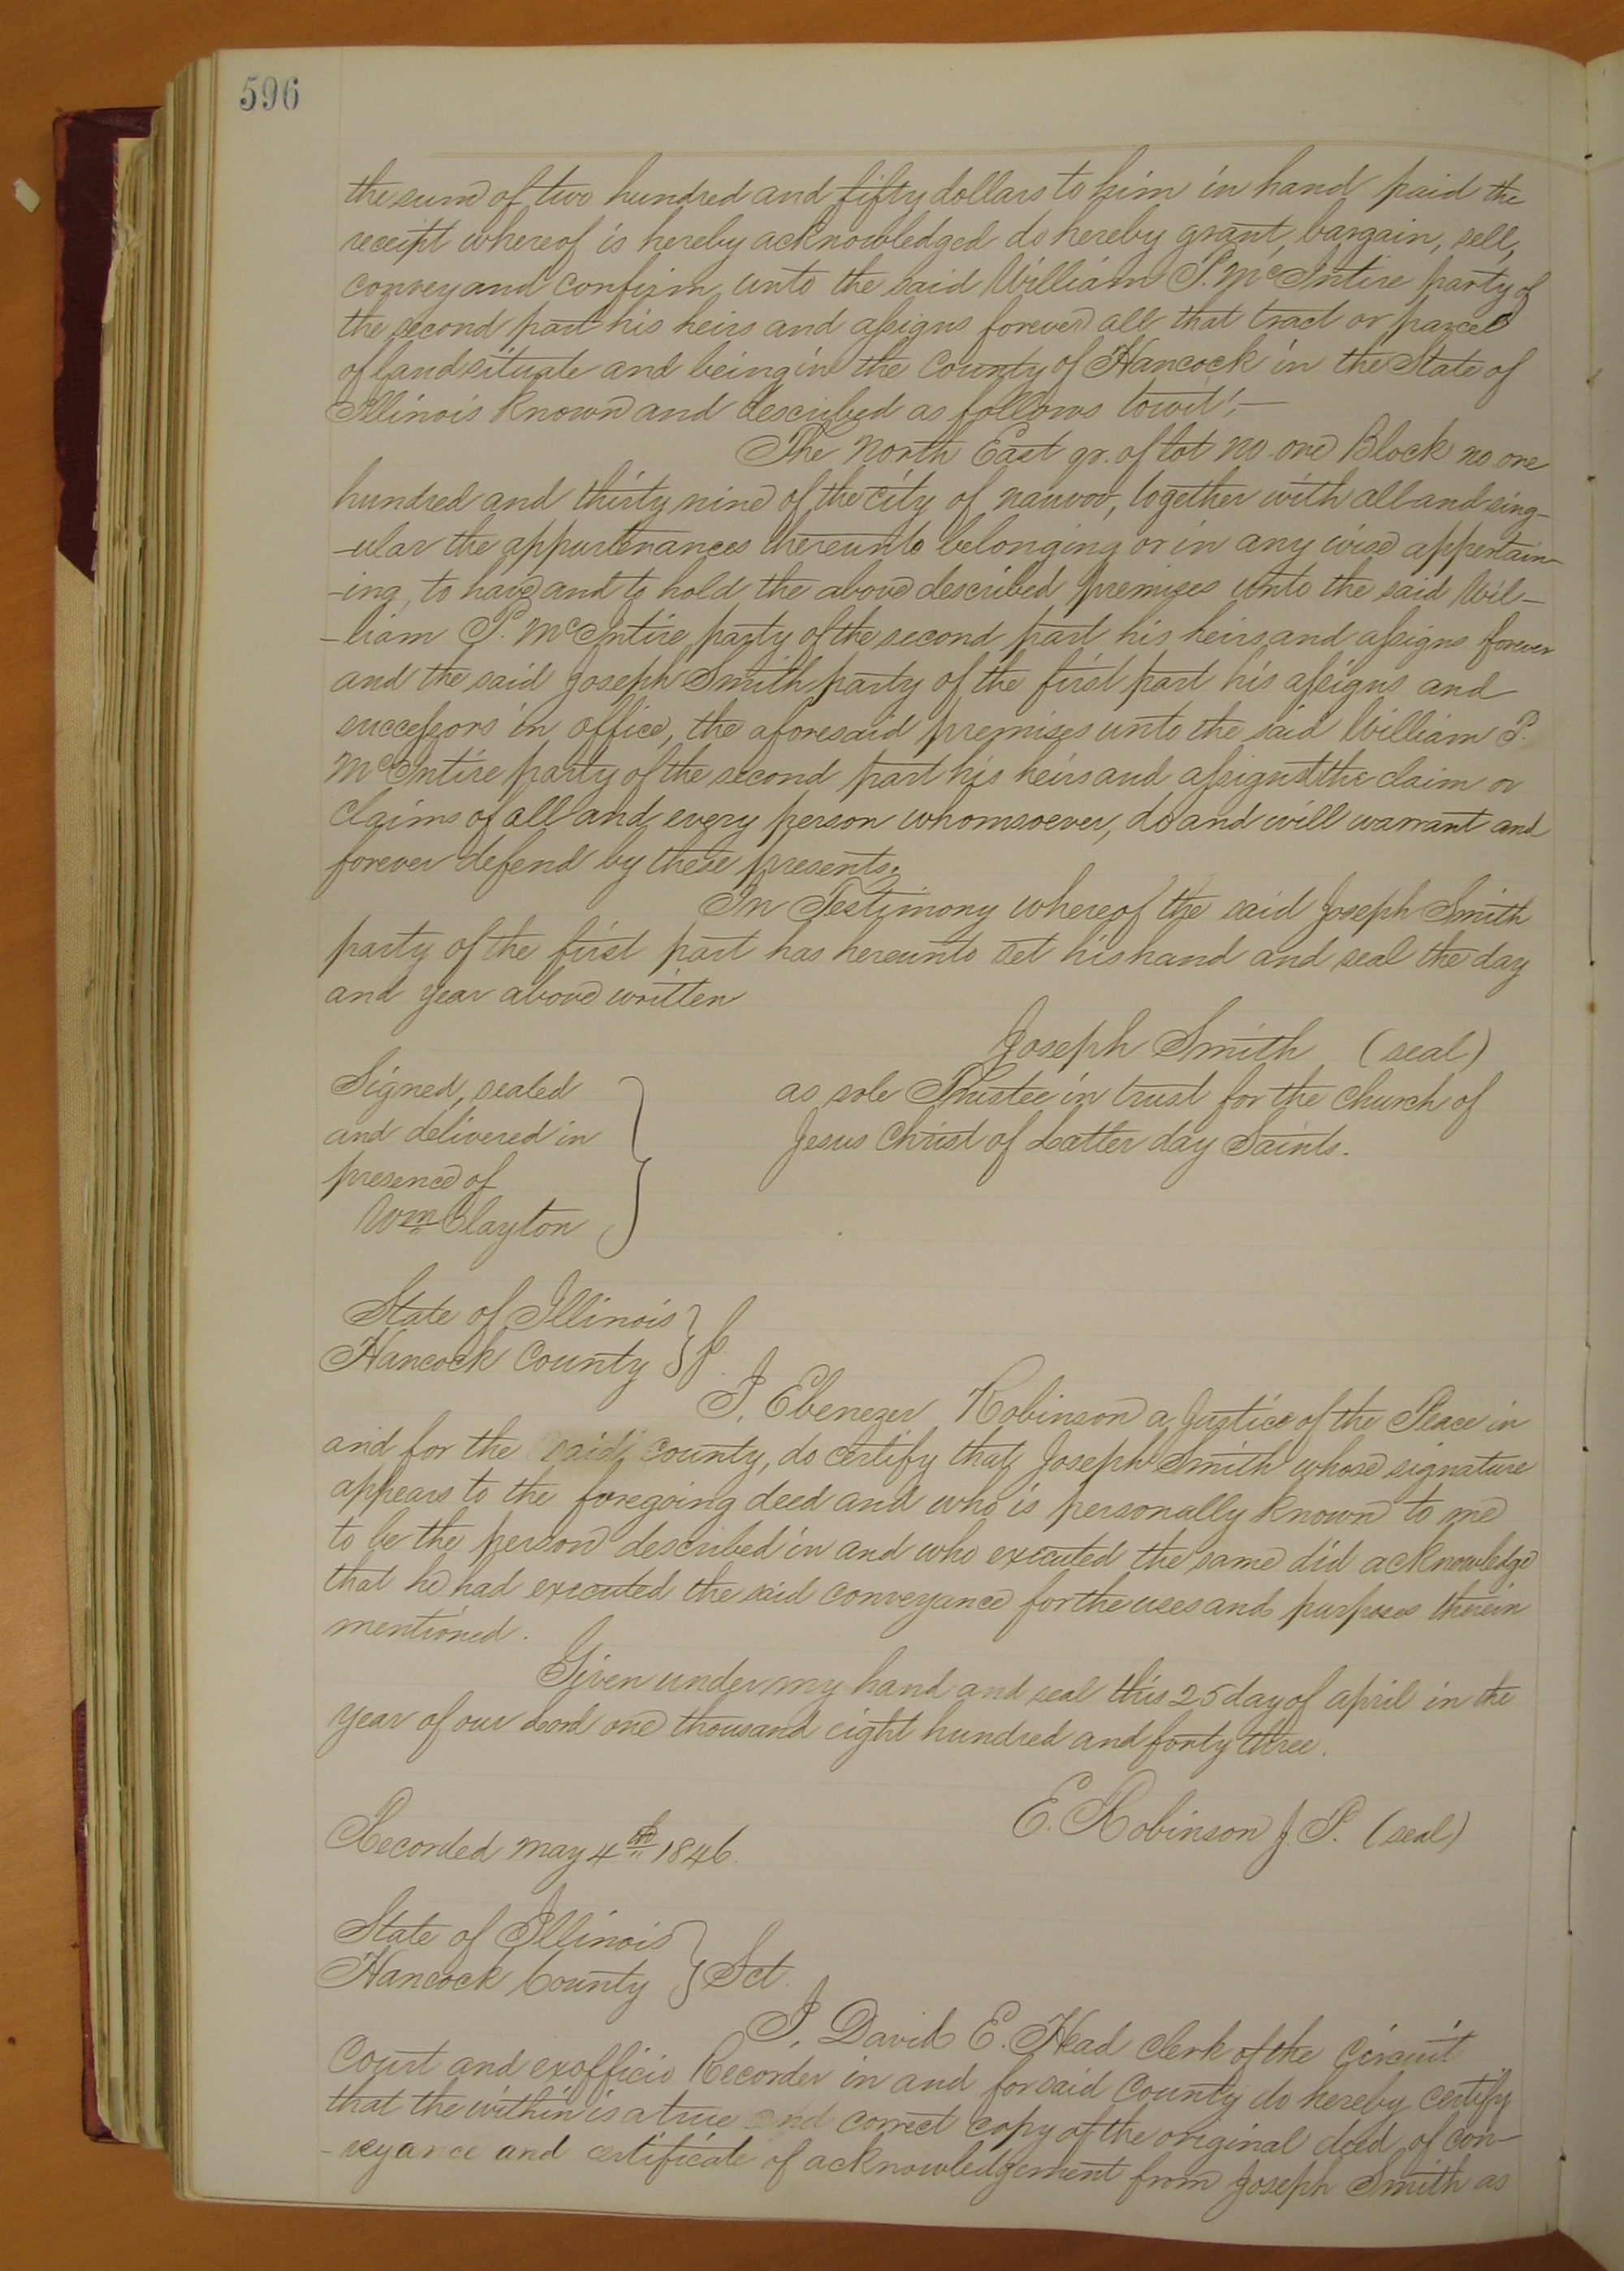 596
the sum of two hundred and fifty dollars to him in hand paid the
receipt whereof is hereby acknowledged do hereby grant, bargain, sell,
convey and confirm, unto the said William P. McIntire party of
the second part his heirs and assigns forever all that tract or parcel
of land situate and being in the County of Hancock in the State of
Illinois known and described as follows towit:—
The North East qr. of lot no one Block no one
hundred and thirty nine of the city of nauvoo, together with all and sing-
-ular the appurtenances thereunto belonging or in any wise appertain-
-ing, to have and to hold the above described premises unto the said Wil-
-liam P. McIntire party of the second part his heirs and assigns forever
and the said Joseph Smith party of the first part his assigns and
successors in office, the aforesaid premises unto the said William P.
McIntire party of the second part his heirs and assigns the claim or
claims of all and every person whomsoever, do and will warrant and
forever defend by these presents.
In Testimony whereof the said Joseph Smith
party of the first part has hereunto set his hand and seal the day
and year above written
Joseph Smith (seal)
as sole Trustee in trust for the Church of
Jesus Christ of Latter day Saints.
Signed, sealed
and delivered in
presence of
Wm Clayton
State of Illinois
Hancock County
I, Ebenezer Robinson a Justice of the Peace in
and for the said county, do certify that Joseph Smith whose signature
appears to the foregoing deed and who is personally known to me
to be the person described in and who executed the same did acknowledge
that he had executed the said conveyance for the uses and purposes therein
mentioned.
Given under my hand and seal this 25 day of april in the
year of our Lord one thousand eight hundred and forty three.
E. Robinson J. P. (seal)
Recorded may 4th 1846.
State of Illinois
Hancock County } Sct.
I, David E. Head clerk of the circuit
Court and exofficio Recorder in and for said County do hereby certify
that the within is a true and correct copy of the original deed of con-
-veyance and certificate of acknowledgement from Joseph Smith as